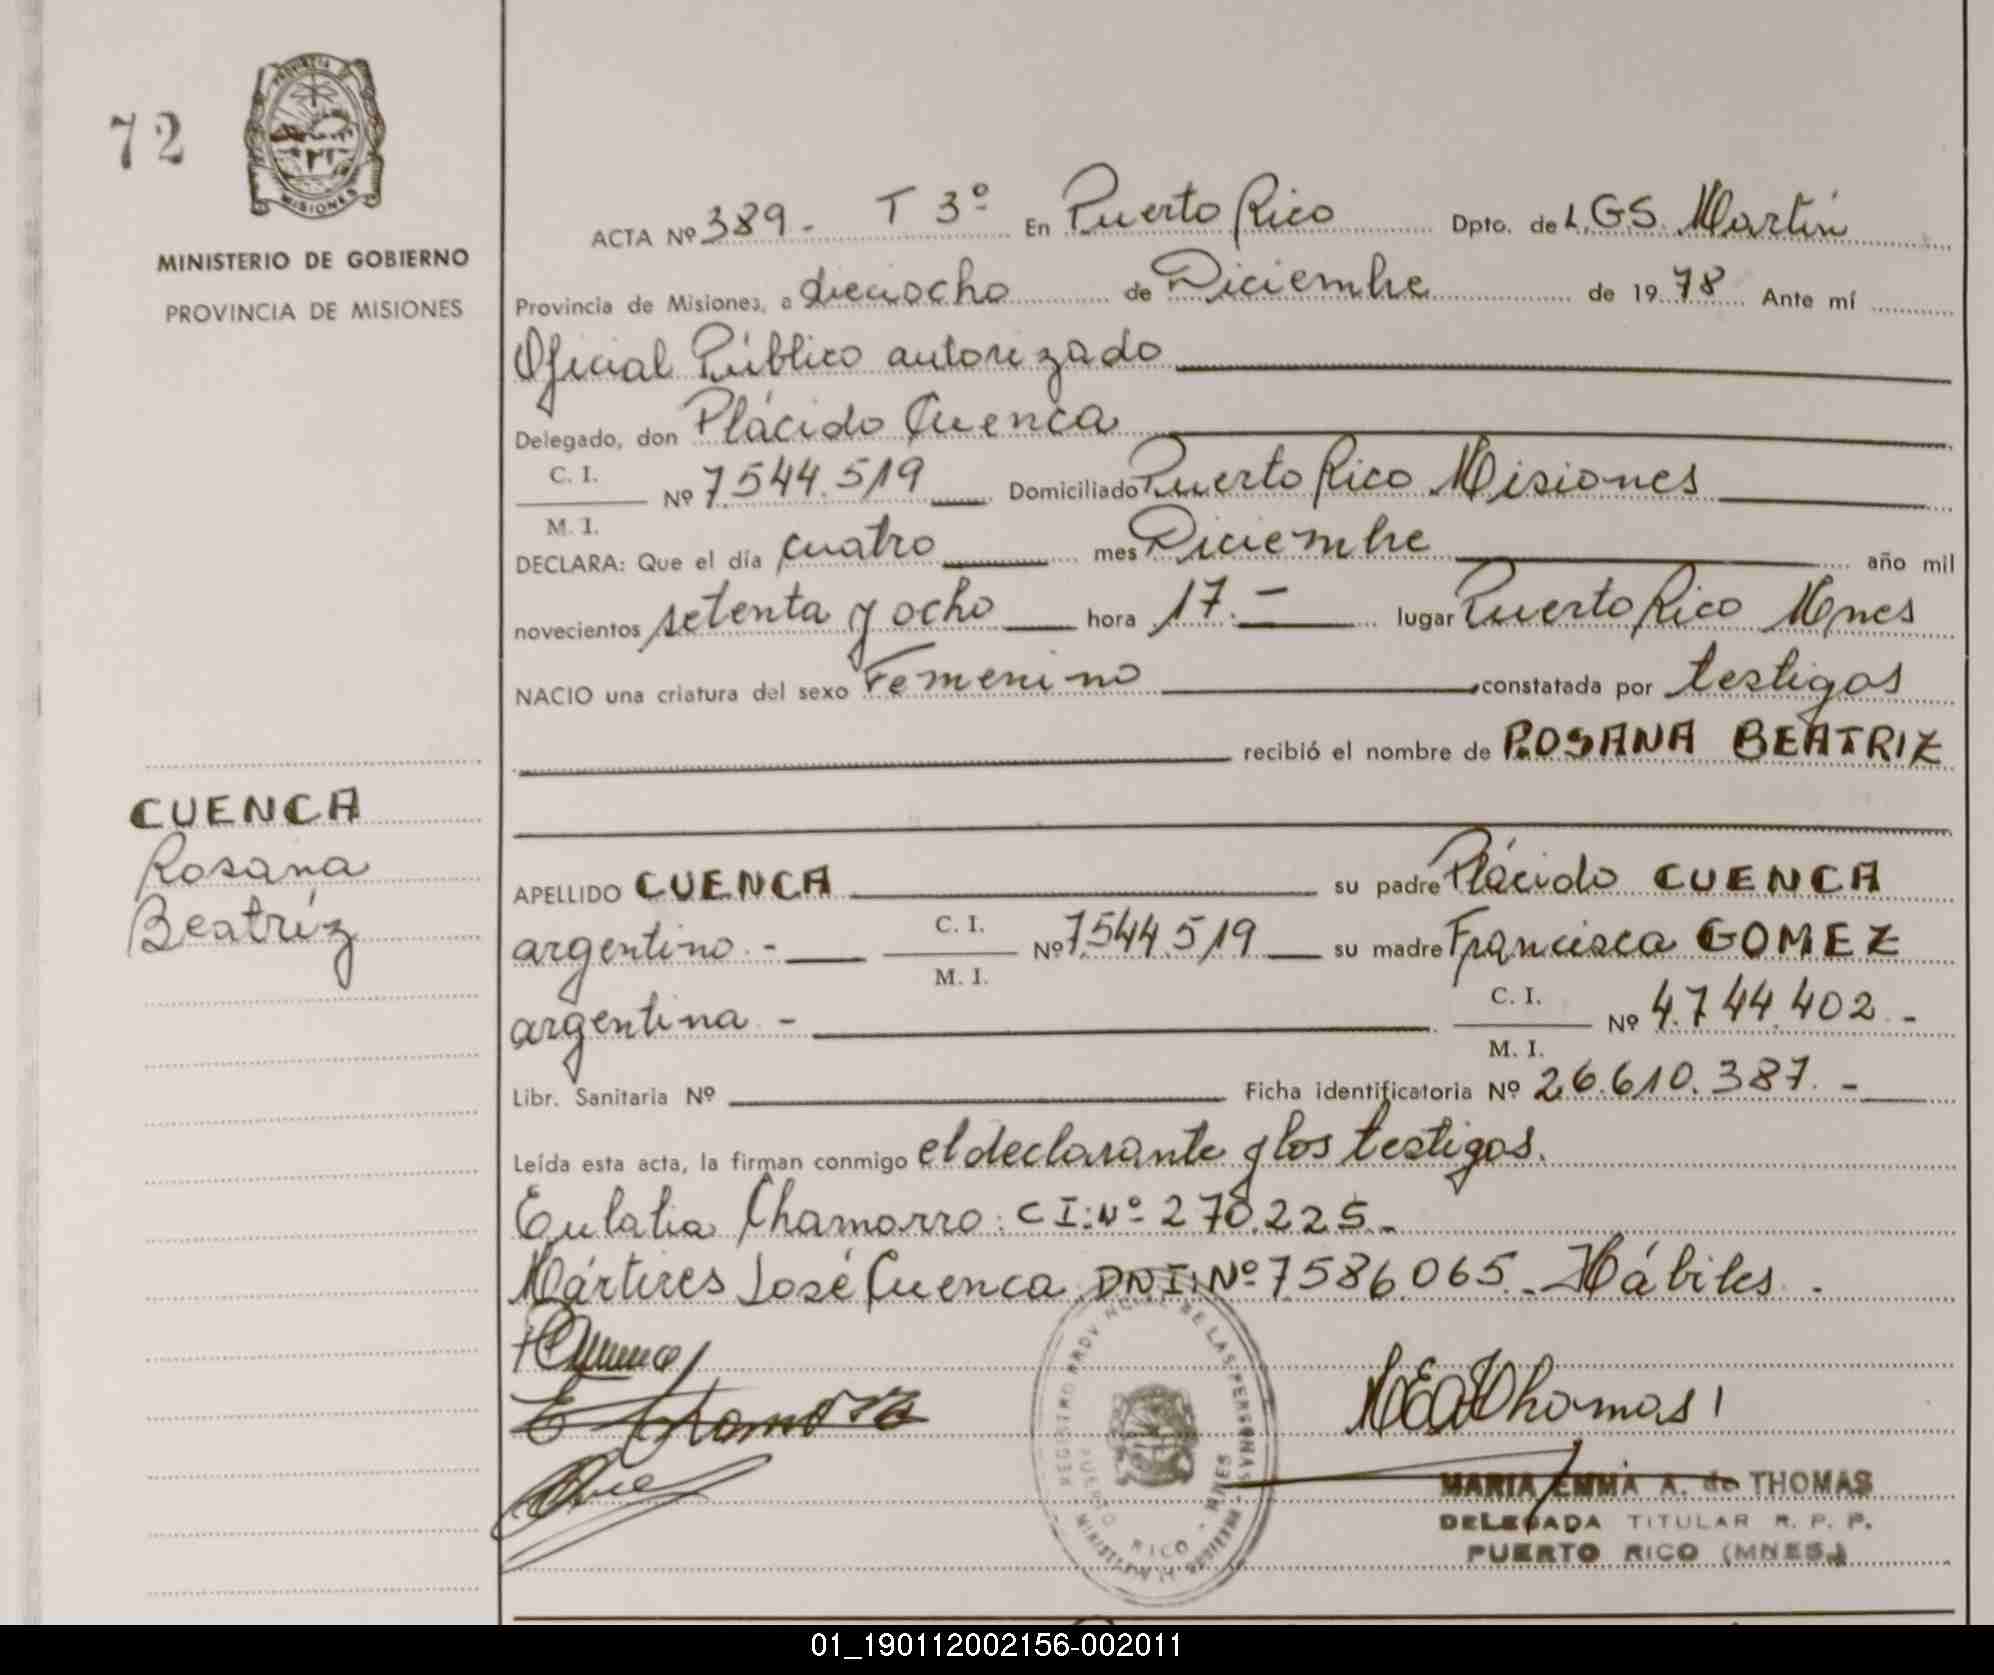 72
PROVINCIA DE
MISIONES
MINISTERIO DE GOBIERNO
PROVINCIA DE MISIONES
CUENCA
Rosana
Beatríz
ACTA Nº 389.- T 3º En Puerto Rico Dpto. de L.GS. Martín
Provincia de Misiones, a dieciocho de Diciembre de 1978 Ante mí
Oficial Público autorizado
Delegado, don Plácido Cuenca
C. I.
M. I. Nº 7544.519 Domiciliado Puerto Rico Misiones
DECLARA: Que el día cuatro mes Diciembre año mil
novecientos setenta y ocho hora 17.- lugar Puerto Rico Mnes
NACIO una criatura del sexo Femenino constatada por testigos
recibió el nombre de ROSANA BEATRIZ
APELLIDO CUENCA su padre Plácido CUENCA
argentino.- C. I. M. I. Nº 7.544.519 su madre Francisca GOMEZ
argentina - C. I. M. I. Nº 4.744.402.-
Libr. Sanitaria Nº Ficha identificatoria Nº 26.610.387.-
Leída esta acta, la firman conmigo el declarante y los testigos.
Eulalia Chamorro: CI:Nº 270.225.-
Mártires José Cuenca DNI:Nº 7.586.065.- Hábiles.-
REGISTRO PROVINCIAL DE LAS PERSONAS
PUERTO RICO - MNES
MINISTERIO DE GOBIERNO
MARIA EMMA A. de THOMAS
DELEGADA TITULAR R. P. P.
PUERTO RICO (MNES.)
01_190112002156-002011